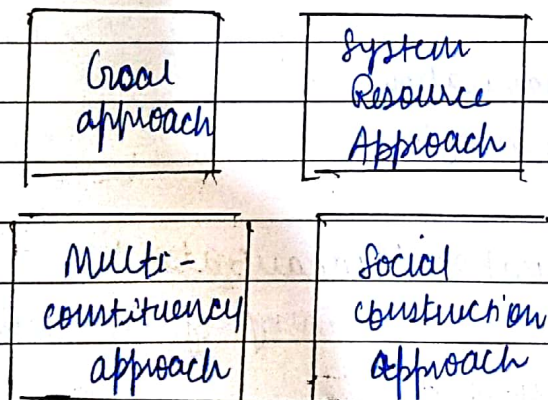 Goal
approach
System
Resource
Approach
Multi-
constituency
approach
Social
construction
approach